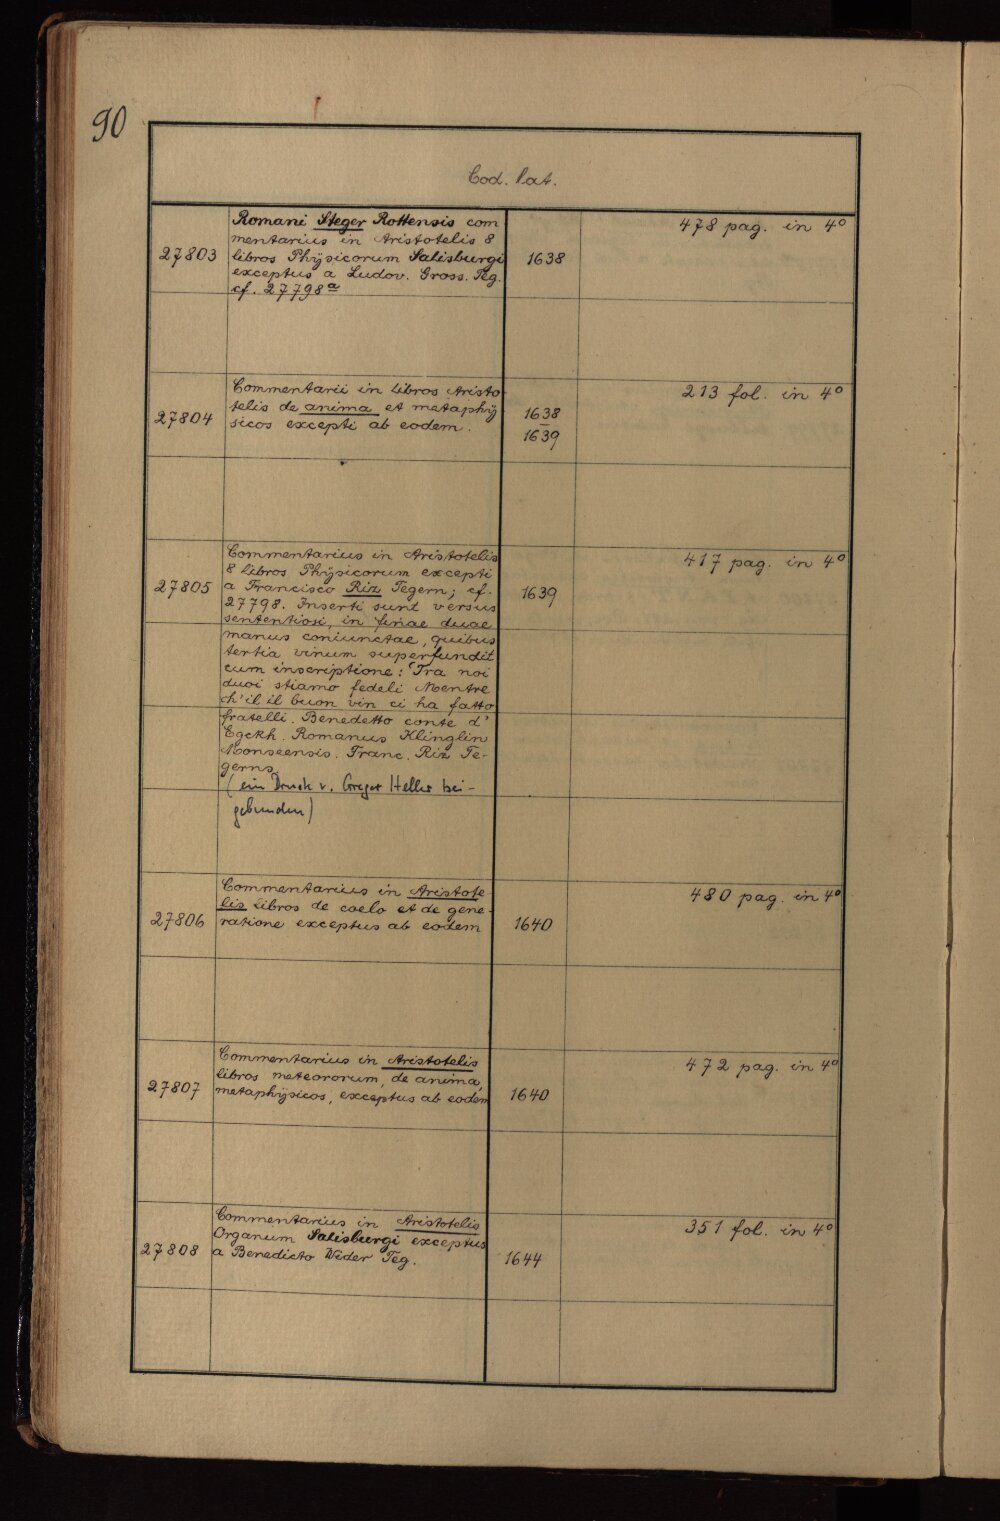 90
Cod. lat.
Romani Steger Rottensis com
mentarius in Aristotelis 8
27803 libros Physicorum Salisburgi 1638 478 pag. in 4º
exceptus a Ludov. Gross. Teg.
cf. 27798ª
Commentarii in libros Aristo
telis de anima et metaphy
27804 sicos excepti ab eodem. 1638 213 fol. in 4º
1639
Commentarius in Aristotelis
8 libros Physicorum excepti
27805 a Francisco Riz Tegern; cf. 1639 417 pag. in 4º
27798. Inserti sunt versus
sententiosi, in fine duae
manus coniunctae, quibus
tertia vinum superfundit
cum inscriptione: Tra noi
duoi stiamo fedeli Mentre
ch'il il buon vin ci ha fatto
fratelli. Benedetto conte d'
Egckh. Romanus Klinglin
Monseensis. Franc. Riz Te-
gerns.
(ein Druck v. Gregor Heller bei-
gebunden)
Commentarius in Aristote
lis libros de coelo et de gene-
27806 ratione exceptus ab eodem 1640 480 pag. in 4º
Commentarius in Aristotelis
libros meteororum, de anima,
27807 metaphysicos, exceptus ab eodem 1640 472 pag. in 4º
Commentarius in Aristotelis
Organum Salisburgi exceptus
27808 a Benedicto Weder Teg. 1644 351 fol. in 4º